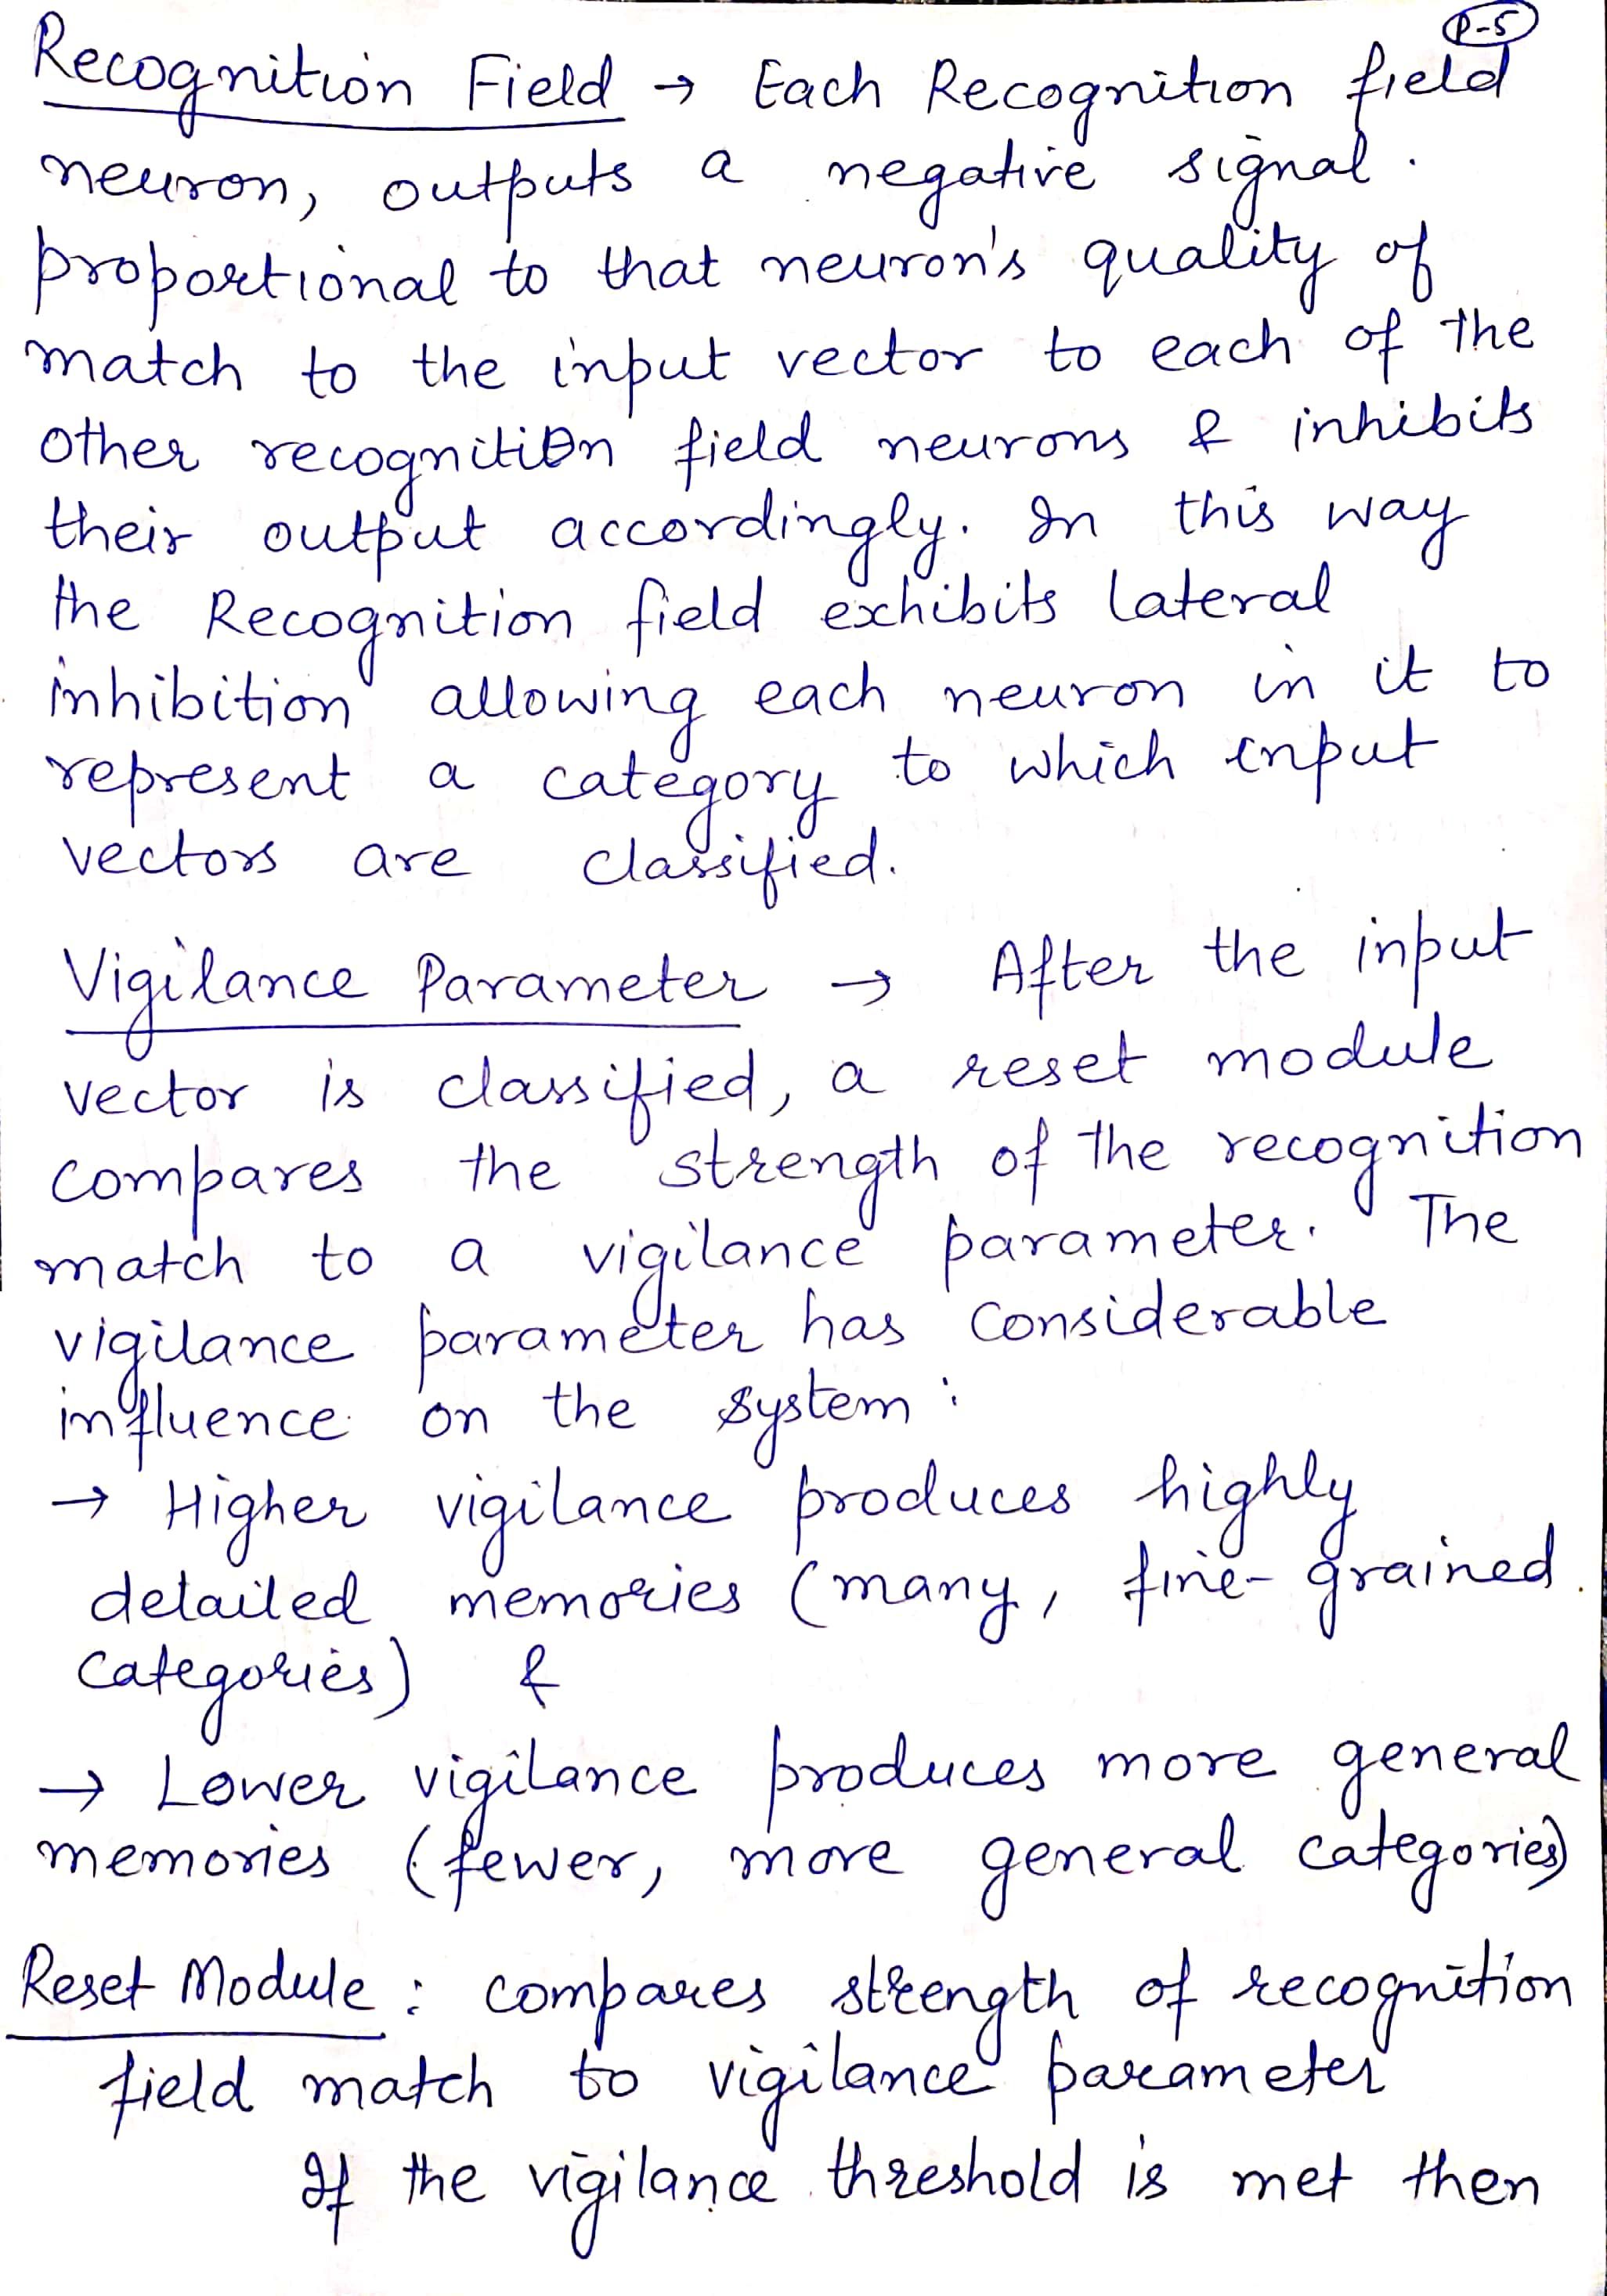 P-5
Recognition Field → Each Recognition field
neuron, outputs a negative signal.
proportional to that neuron's quality of
match to the input vector to each of the
other recognition field neurons & inhibits
their output accordingly. In this way
the Recognition field exhibits lateral
inhibition allowing each neuron in it to
represent a category to which input
vectors are classified.
Vigilance Parameter → After the input
vector is classified, a reset module
compares the strength of the recognition
match to a vigilance parameter. The
vigilance parameter has considerable
influence on the system:
→ Higher vigilance produces highly
detailed memories (many, fine-grained
categories) &
→ Lower vigilance produces more general
memories (fewer, more general categories)
Reset Module : compares strength of recognition
field match to vigilance parameter
If the vigilance threshold is met then